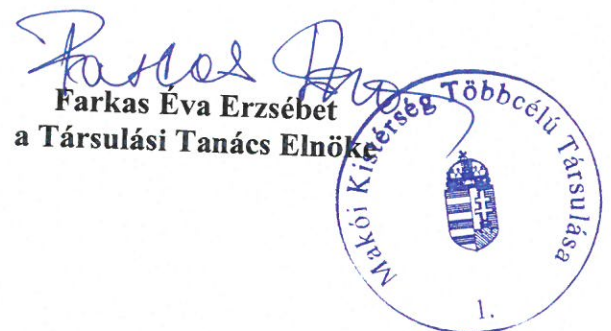 Farkas Éva
Farkas Éva Erzsébet
a Társulási Tanács Elnöke
Makói Kistérség Többcélú Társulása
1.